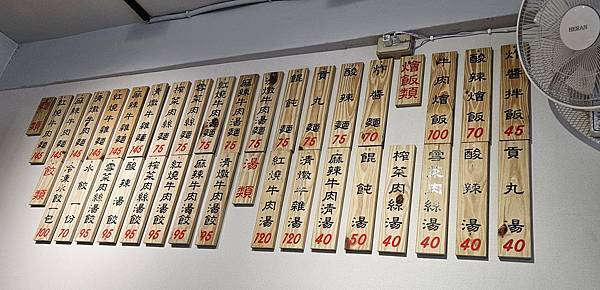 麵類
紅燒牛肉麵 145
麻辣牛肉麵 145
清燉牛肉麵 145
紅燒牛雜麵 145
麻辣牛雜麵 145
清燉牛雜麵 145
榨菜肉絲麵 75
雪菜肉絲麵 75
紅燒牛肉湯麵 75
麻辣牛肉湯麵 75
清燉牛肉湯麵 75
餛飩麵 75
貢丸麵 75
酸辣麵 75
炸醬麵 70
燴飯類
牛肉燴飯 100
酸辣燴飯 70
炸醬拌飯 45
餃類
冷凍水餃一包 100
水餃一份 70
雪菜肉絲湯餃 95
酸辣湯餃 95
榨菜肉絲湯餃 95
紅燒牛肉湯餃 95
麻辣牛肉湯餃 95
清燉牛肉湯餃 95
湯類
紅燒牛肉湯 120
清燉牛雜湯 120
麻辣牛肉清湯 40
餛飩湯 50
榨菜肉絲湯 40
雪菜肉絲湯 40
酸辣湯 40
貢丸湯 40
HERAN